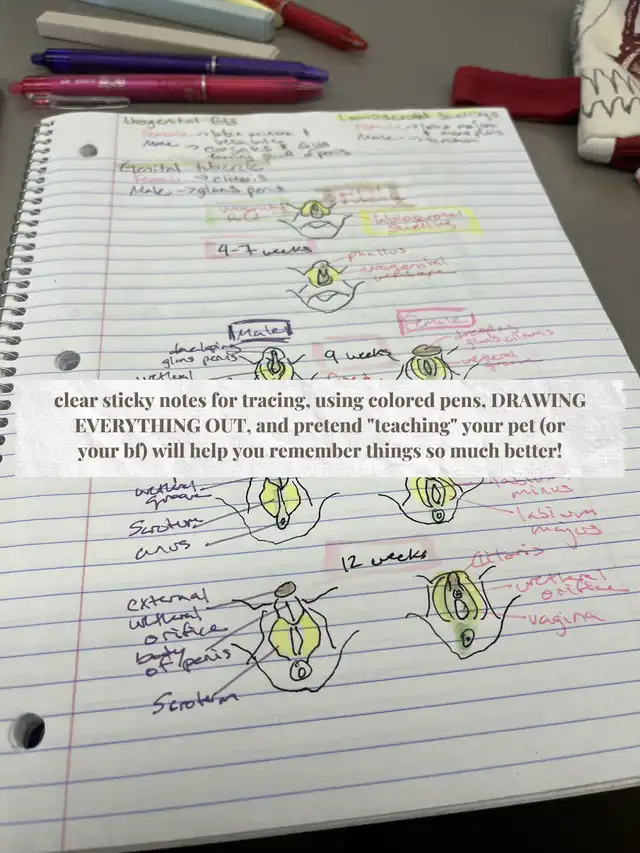 Urogenital folds
Labioscrotal Swellings
Female → labia minora &
Female → labia majora
Male →
Male → scrotum
Genital tubercle
Female → clitoris
Male → glans penis
labioscrotal
swellings
4-7 weeks
phallus
urogenital
Male
Female
developing
glans penis
9 weeks
developing
glans clitoris
urethral
urethral
groove
clear sticky notes for tracing, using colored pens, DRAWING
EVERYTHING OUT, and pretend "teaching" your pet (or
your bf) will help you remember things so much better!
urethral
groove
Scrotum
anus
labium
minus
labium
majus
12 weeks
clitoris
urethral
orifice
vagina
external
urethral
orifice
body
of penis
Scroterm